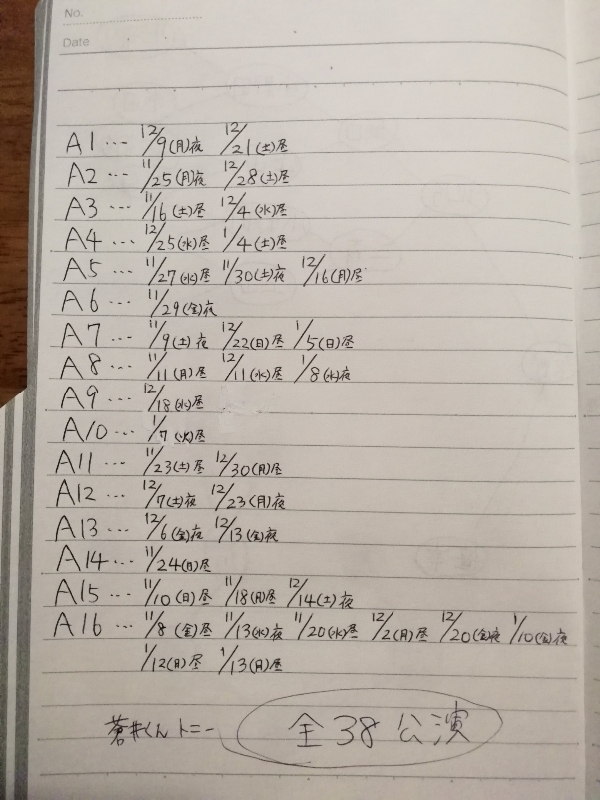 No.
Date
A1 … 12/9(月)夜 12/21(土)昼
A2 … 11/25(月)夜 12/28(土)昼
A3 … 11/16(土)昼 12/4(水)昼
A4 … 12/25(水)昼 1/4(土)昼
A5 … 11/27(水)昼 11/30(土)夜 12/16(月)昼
A6 … 11/29(金)夜
A7 … 11/9(土)夜 12/22(日)昼 1/5(日)昼
A8 … 11/11(月)昼 12/11(水)昼 1/8(水)夜
A9 … 12/18(水)昼
A10 … 1/7(火)昼
A11 … 11/23(土)昼 12/30(月)昼
A12 … 12/7(土)夜 12/23(月)夜
A13 … 12/6(金)夜 12/13(金)夜
A14 … 11/24(日)昼
A15 … 11/10(日)昼 11/18(月)昼 12/14(土)夜
A16 … 11/8(金)昼 11/13(水)夜 11/20(水)昼 12/2(月)昼 12/20(金)夜 1/10(金)夜
1/12(日)昼 1/13(月)昼
蒼井くんトニー 全38公演